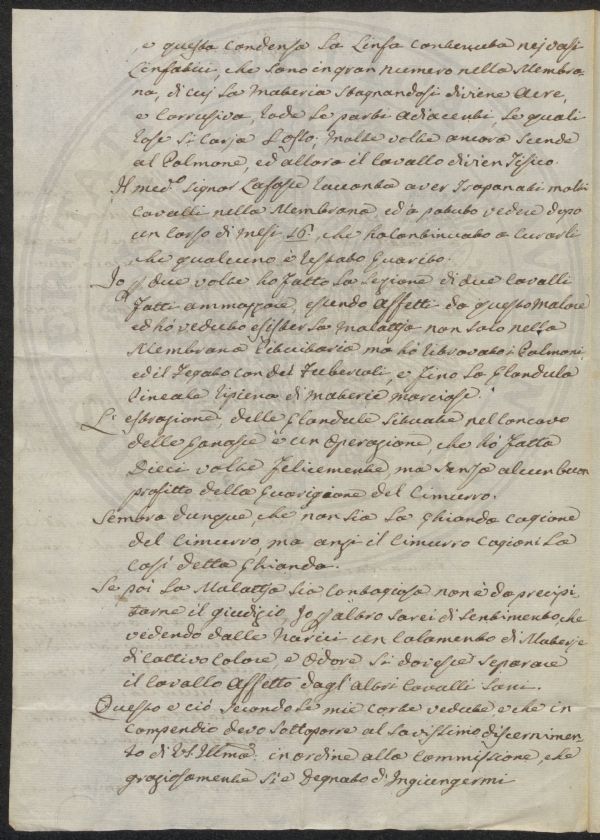 , e questa condensa la Linfa contenuta nej vasi
Linfatici, che sono in gran numero nella Membra-
na, di cuj la materia stagnandosi diviene Acre,
e Corrusiva, rode le parti adiacenti, le quali
rose si caria l'osso; molte volte ancora scende
al Polmone, ed allora il cavallo divien Tisico.
Il med.º Signor Lafosse racconta aver trapanati molti
Cavalli nella Membrana, ed à potuto vedere dopo
un Corso di Mesi 16. che ha continuato a curarli
che qualcuno è restato Guarito.
Io p due volte ho fatto la sezione di due Cavalli
fatti ammazzare, essendo Affetti da questo Malore
ed hò veduto esister la Malattja non solo nella
Membrana Pituitaria ma hò ritrovato i Polmoni,
ed il Fegato con dei Tubercoli, e fino la Glandula
Pineale ripiena di materie marciose.
L'estrazione, delle Glandule situate nel Concavo
delle Ganasie è un Operazione, che hò fatta
Dieci volte felicemente ma senza alcun buon
profitto della Guarigione del Cimurro.
Sembra dunque che non sia la Ghianda cagione
del Cimurro, ma anzi il Cimurro cagioni la
così detta Ghianda.
Se poi la Malattja sia Contagiosa non è da precipi
tarne il giudizio, Io p altro sarei di Sentimento, che
vedendo dalle Narici un Colamento di Materje
di Cattivo Colore, e Odore si dovesse separare
il Cavallo Affetto dagl'altri Cavalli Sani.
Questo è ciò secondo le mie corte vedute e che in
compendio devo sottoporre al Savissimo discernimen
to di V.S. Illma. in ordine alla Commissione, che
graziosamente si è Degnato di Ingiungermi